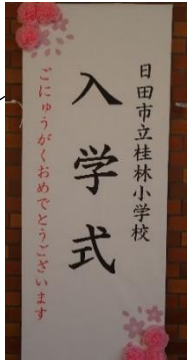 日田市立桂林小学校
入学式
ごにゅうがくおめでとうございます